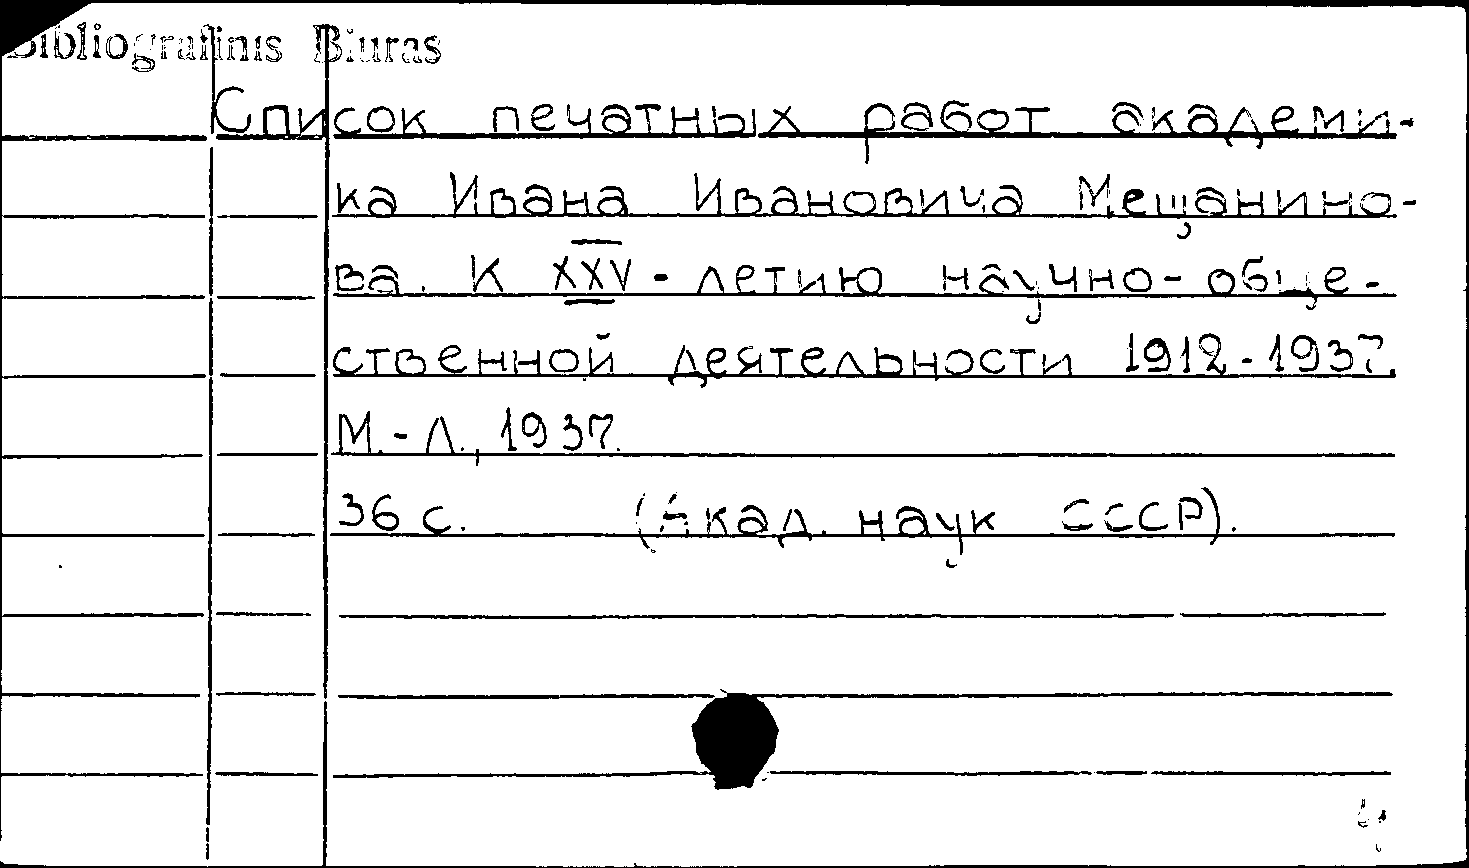 Bibliografinis Biuras
Список печатных работ академи-
ка Ивана Ивановича Мещанино-
ва. К XXV - летию научно-обще-
ственной деятельности 1912-1937.
М.-Л., 1937.
36 с. (Акад. наук СССР).